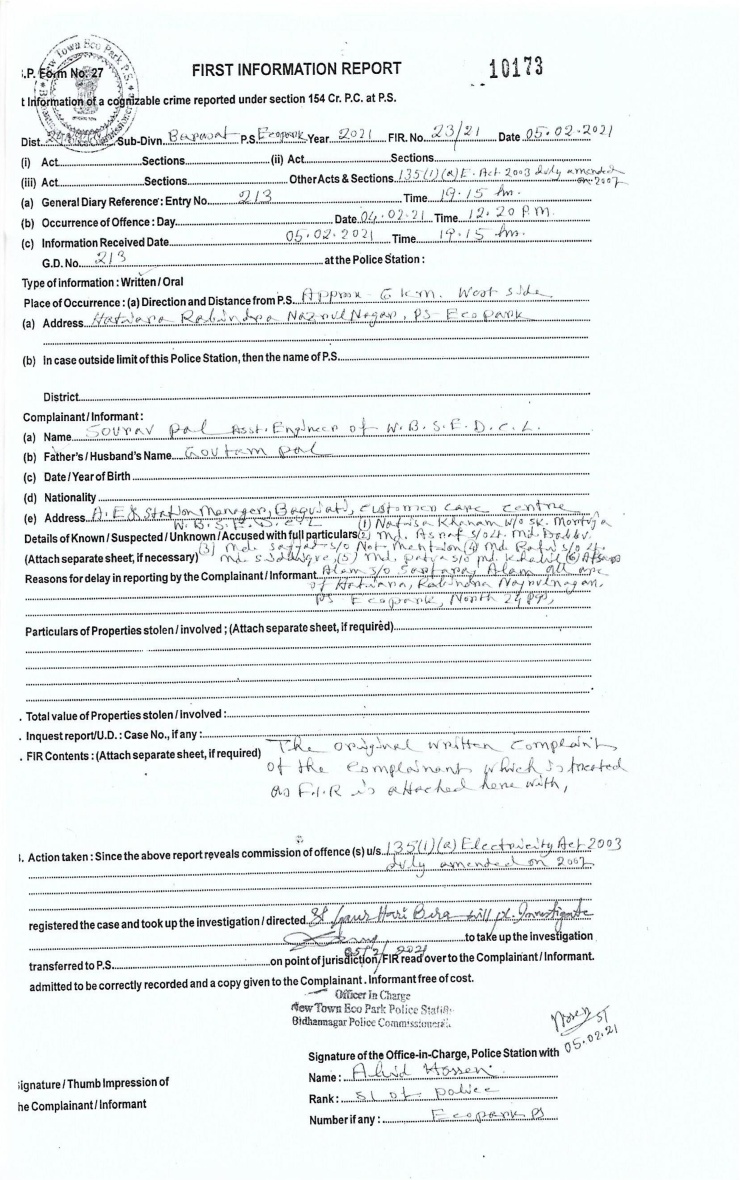 New Town Eco Park P.S.
.P. Form No. 27
FIRST INFORMATION REPORT
10173
t Information of a cognizable crime reported under section 154 Cr. P.C. at P.S.
Dist. Sub-Divn Barasat P.S. Ecopark Year 2021 FIR. No. 23/21 Date 05.02.2021
(i) Act Sections (ii) Act Sections
(iii) Act Sections Other Acts & Sections 135(1)(a) E. Act 2003 duly amended on 2007
(a) General Diary Reference : Entry No. 213 Time 19.15 hrs.
(b) Occurrence of Offence : Day Date 04.02.21 Time 12.20 P.M.
(c) Information Received Date 05.02.2021 Time 19.15 hrs.
G.D. No. 213 at the Police Station :
Type of information : Written / Oral
Place of Occurrence : (a) Direction and Distance from P.S. Approx 6 k.m. West side
(a) Address Hatiara Rabindra Nazrul Nagar, PS- Ecopark
(b) In case outside limit of this Police Station, then the name of P.S.
District
Complainant / Informant :
(a) Name Sourav Pal Asst. Engineer of W.B.S.E.D.C.L.
(b) Father's / Husband's Name Goutam Pal
(c) Date / Year of Birth
(d) Nationality
(e) Address A.E & Station Manager, Baguiati, customer care centre
W.B.S.E.D.C.L (1) Nafisa Khanam w/o SK. Mortuja
Details of Known / Suspected / Unknown / Accused with full particulars (2) Md. Asraf s/o Lt. Md.
(Attach separate sheet, if necessary) (3) Md. s/o Not Mention (4) Md Rafi s/o Lt.
Md. (5) Md. s/o Md Khalil (6)
Reasons for delay in reporting by the Complainant / Informant Alam s/o Alam all are
of Hatiara, Rabindra Nazrulnagar,
PS Ecopark, North 24 pgs,
Particulars of Properties stolen / involved ; (Attach separate sheet, if required)
. Total value of Properties stolen / involved :
. Inquest report / U.D. : Case No., if any :
. FIR Contents : (Attach separate sheet, if required) The original written complaint
of the complainant which is treated
as F.I.R is attached here with,
. Action taken : Since the above report reveals commission of offence (s) u/s 135(1)(a) Electricity Act 2003
duly amended on 2007
registered the case and took up the investigation / directed SI Gaur Hari Bera will pl. Investigate
to take up the investigation
05/2/2021
transferred to P.S. on point of jurisdiction / FIR read over to the Complainant / Informant.
admitted to be correctly recorded and a copy given to the Complainant . Informant free of cost.
Officer In Charge
New Town Eco Park Police Station
Bidhannagar Police Commissionerate
05.02.21
Signature of the Office-in-Charge, Police Station with
Name : Abid Hossen
Rank : SI of police
Number if any : Ecopark PS
ignature / Thumb Impression of
he Complainant / Informant